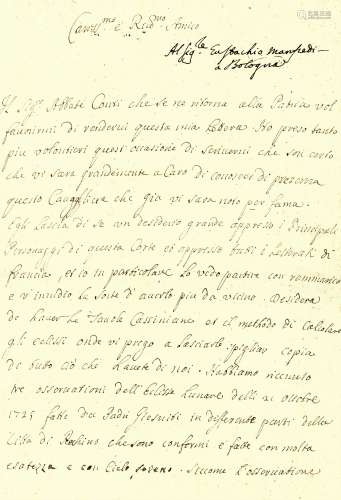 Cariss.mo e Riv.mo Amico
Al Sig.re Eustachio Manfredi
a Bologna
Il Sig.r Abbate Conti che se ne ritorna alla Patria vol
favorirmi di rendervi questa mia lettera. Ho preso tanto
piu volontieri quest'occasione di scrivervi che son certo
che vi sara grandemente a caro di conoscer di presenza
questo Cavagliere che gia vi sara noto per fama.
Egli lascia di se un desiderio grande appresso i Principali
Personaggi di questa Corte et appresso tutti i letterati di
francia, et io in particolare lo vedo partire con rammarico
e v'invidio la sorte d'averlo piu da vicino. Desidera
de haver le Tavole Cassiniane et il methodo di calcolare
gli eclissi onde vi prego a lasciarle pigliar copia
di tutto ciò che havete di noi. Habbiamo ricevuto
tre osservationi dell'eclisse lunare delli 21 ottobre
1725 fatte da Padri Giesuiti in differente parti della
Città di Pechino che sono conformi e fatte con molta
esatezza e con Cielo sereno. Siccome l'osservatione